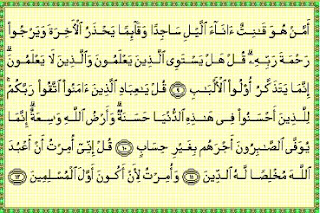 أَمَّنْ هُوَ قَٰنِتٌ ءَانَآءَ ٱلَّيْلِ سَاجِدًا وَقَآئِمًا يَحْذَرُ ٱلْءَاخِرَةَ وَيَرْجُوا۟
رَحْمَةَ رَبِّهِۦ ۗ قُلْ هَلْ يَسْتَوِى ٱلَّذِينَ يَعْلَمُونَ وَٱلَّذِينَ لَا يَعْلَمُونَ ۗ
إِنَّمَا يَتَذَكَّرُ أُو۟لُوا۟ ٱلْأَلْبَٰبِ ٩ قُلْ يَٰعِبَادِ ٱلَّذِينَ ءَامَنُوا۟ ٱتَّقُوا۟ رَبَّكُمْ ۚ
لِلَّذِينَ أَحْسَنُوا۟ فِى هَٰذِهِ ٱلدُّنْيَا حَسَنَةٌ ۗ وَأَرْضُ ٱللَّهِ وَٰسِعَةٌ ۗ إِنَّمَا
يُوَفَّى ٱلصَّٰبِرُونَ أَجْرَهُم بِغَيْرِ حِسَابٍ ١٠ قُلْ إِنِّىٓ أُمِرْتُ أَنْ أَعْبُدَ
ٱللَّهَ مُخْلِصًا لَّهُ ٱلدِّينَ ١١ وَأُمِرْتُ لِأَنْ أَكُونَ أَوَّلَ ٱلْمُسْلِمِينَ ١٢